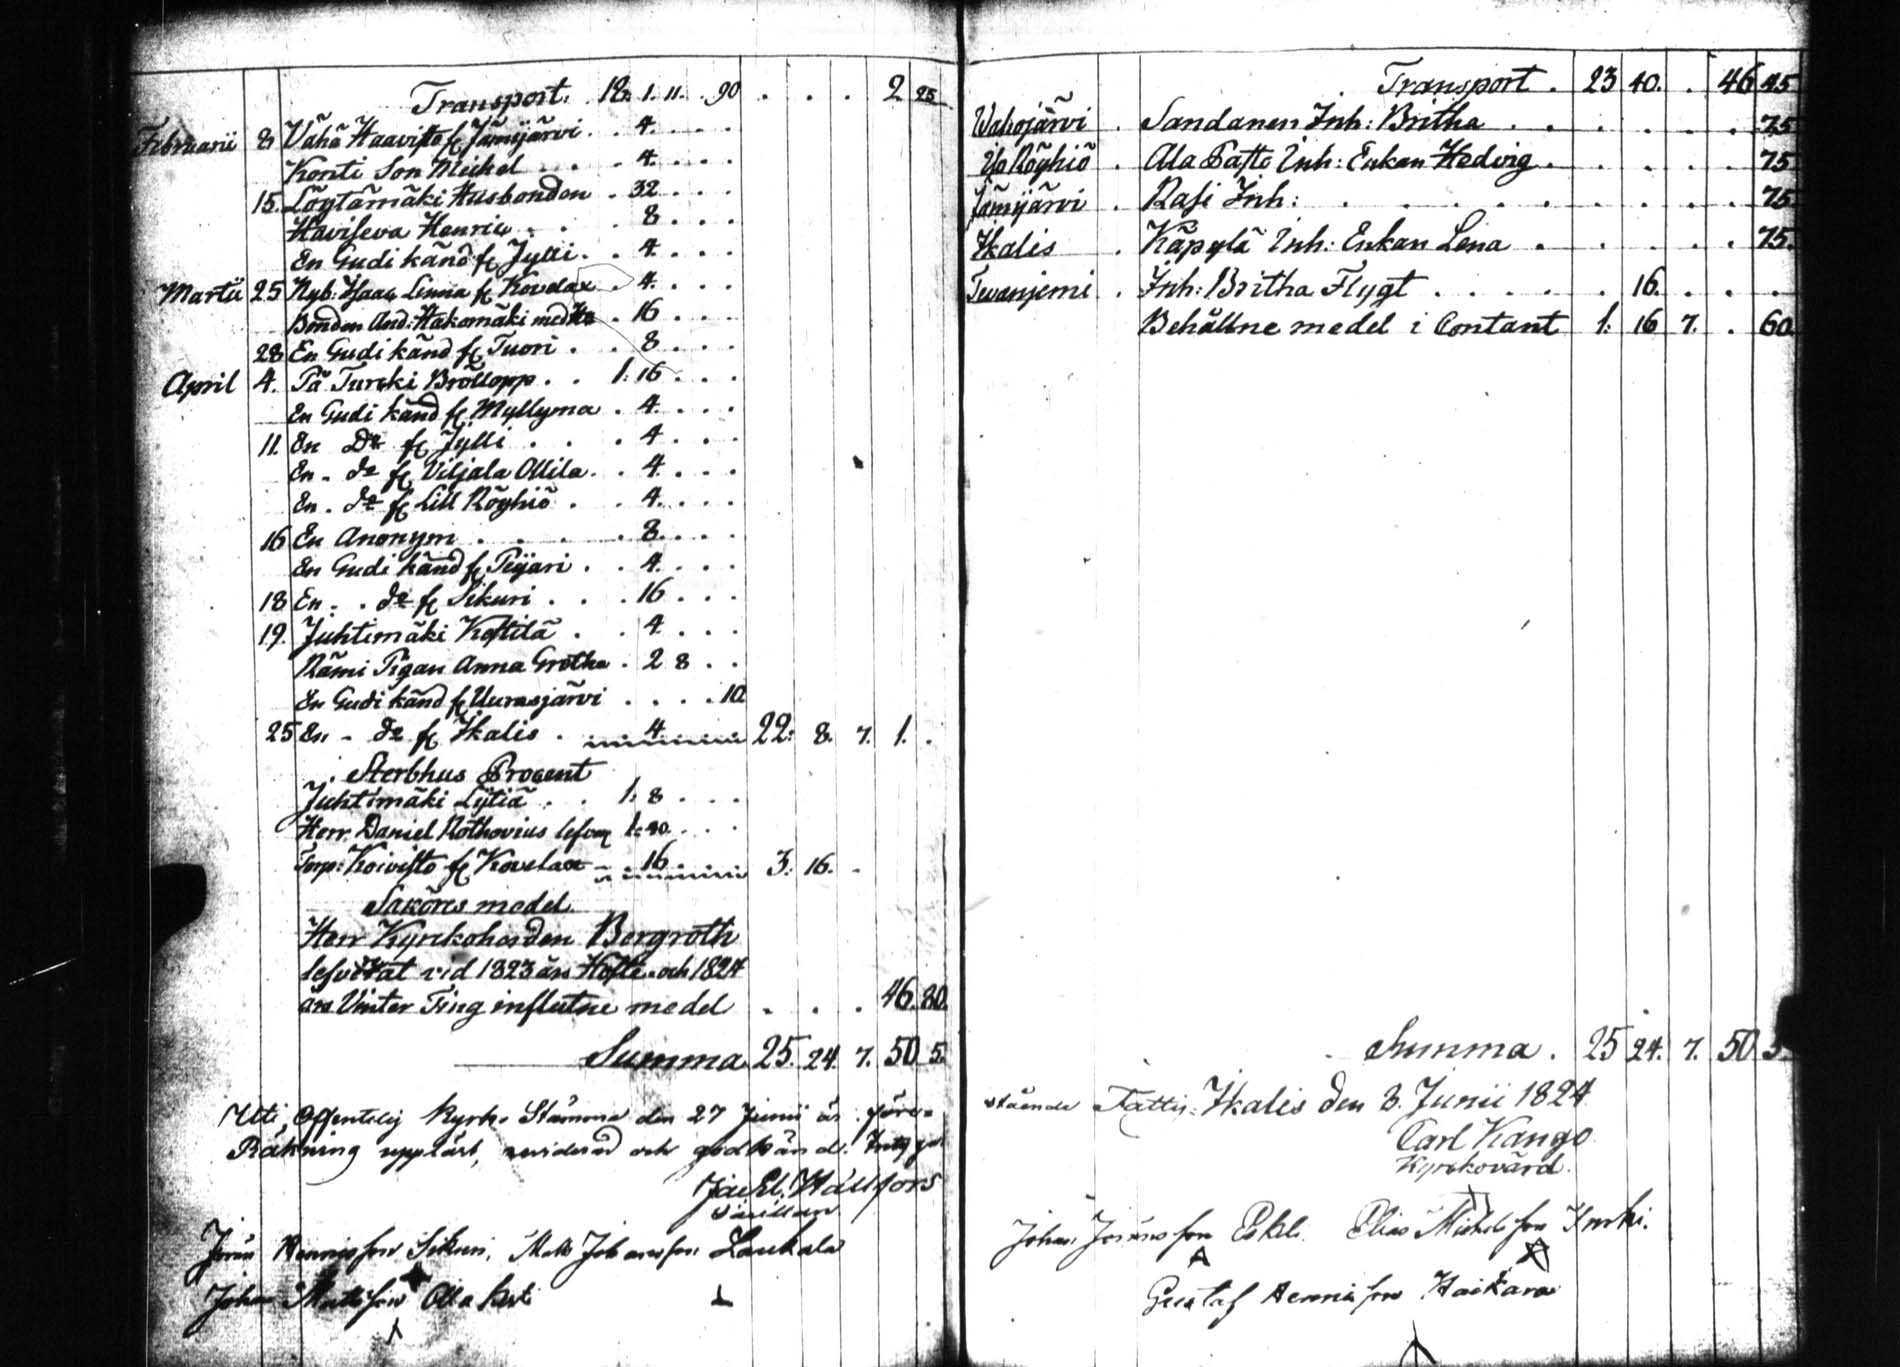 Transport. 18. 1. 11. 90 . . . 2 25
Februarii 8 Vähä Haavisto fr Jämijärvi . . 4. . . .
Konti Son Michel . . . 4. . . .
15. Löytämäki Husbonden . 32 . . .
Haviseva Henric . . . 8 . . .
En Gudi känd fr Jylli . . 4. . . .
Martii 25 Nyb: Isaac Linna fr Kovelax . 4. . . .
Bonden And: Hakomäki med . 16 . . .
28 En Gudi känd fr Tuori . . 8 . . .
April 4. På Turcki Bröllopp . . 1: 16 . . .
En Gudi känd fr Myllyma . 4. . . .
11. En Do fr Jylli . . . 4 . . .
En . do fr Viljala Ollila . . 4. . . .
En . do fr Lill Röyhiö . . 4. . . .
16 En Anonym . . . . . 8. . . .
En Gudi känd fr Peijari . . 4. . . .
18 En . . do fr Sikuri . . . 16 . . .
19. Juhtimäki Kostilä . . 4. . . .
Rämi Pigan Anna Gretha . 2 8 . .
En Gudi känd fr Uurasjärvi . . . . 10.
25 En - do fr Ikalis . 4 22: 8. 7. 1. .
Sterbhus Procent
Juhtimäki Lytiä . . 1: 8 . . .
Herr Daniel Rothovius 1: 40 . . .
Torp: Koivisto fr Kovelax . 16 3: 16. -
Saköres medel
Herr Kyrckoherden Bergroth
lefvererat vid 1823 års Höste och 1824
års Vinter Ting influtne medel . . . 46. 80.
Summa 25. 24. 7. 50 5.
Uti Offentelig Kyrko Stämma den 27 Junii är före-
Räkning uppläst, reviderad och godkänd.
Hällfors
Henricsson Sikuri, Matts Johansson Laukala
Johan Mattsson
Transport . 23 40. . 46 45
Wahojärvi . Sandanen Inh: Britha . . . . . . . 75
Yo Röyhiö . Ala Passo Inh: Enkan Hedvig . . . . . . 75
Jämijärvi . Rasi Inh: . . . . . . . . . 75
Ikalis . Käpylä Inh: Enkan Lena . . . . . . 75.
Tevanjemi . Inh: Britha Flygt . . . . . 16. . . .
Behållne medel i Contant 1: 16 7. . 60.
Summa . 25 24. 7. 50 5
stående Ikalis den 3. Junii 1824
Carl Kango
Kyrckovärd.
Johan Eskeli. Elias Michelsson
Gustaf Henricsson Haikara